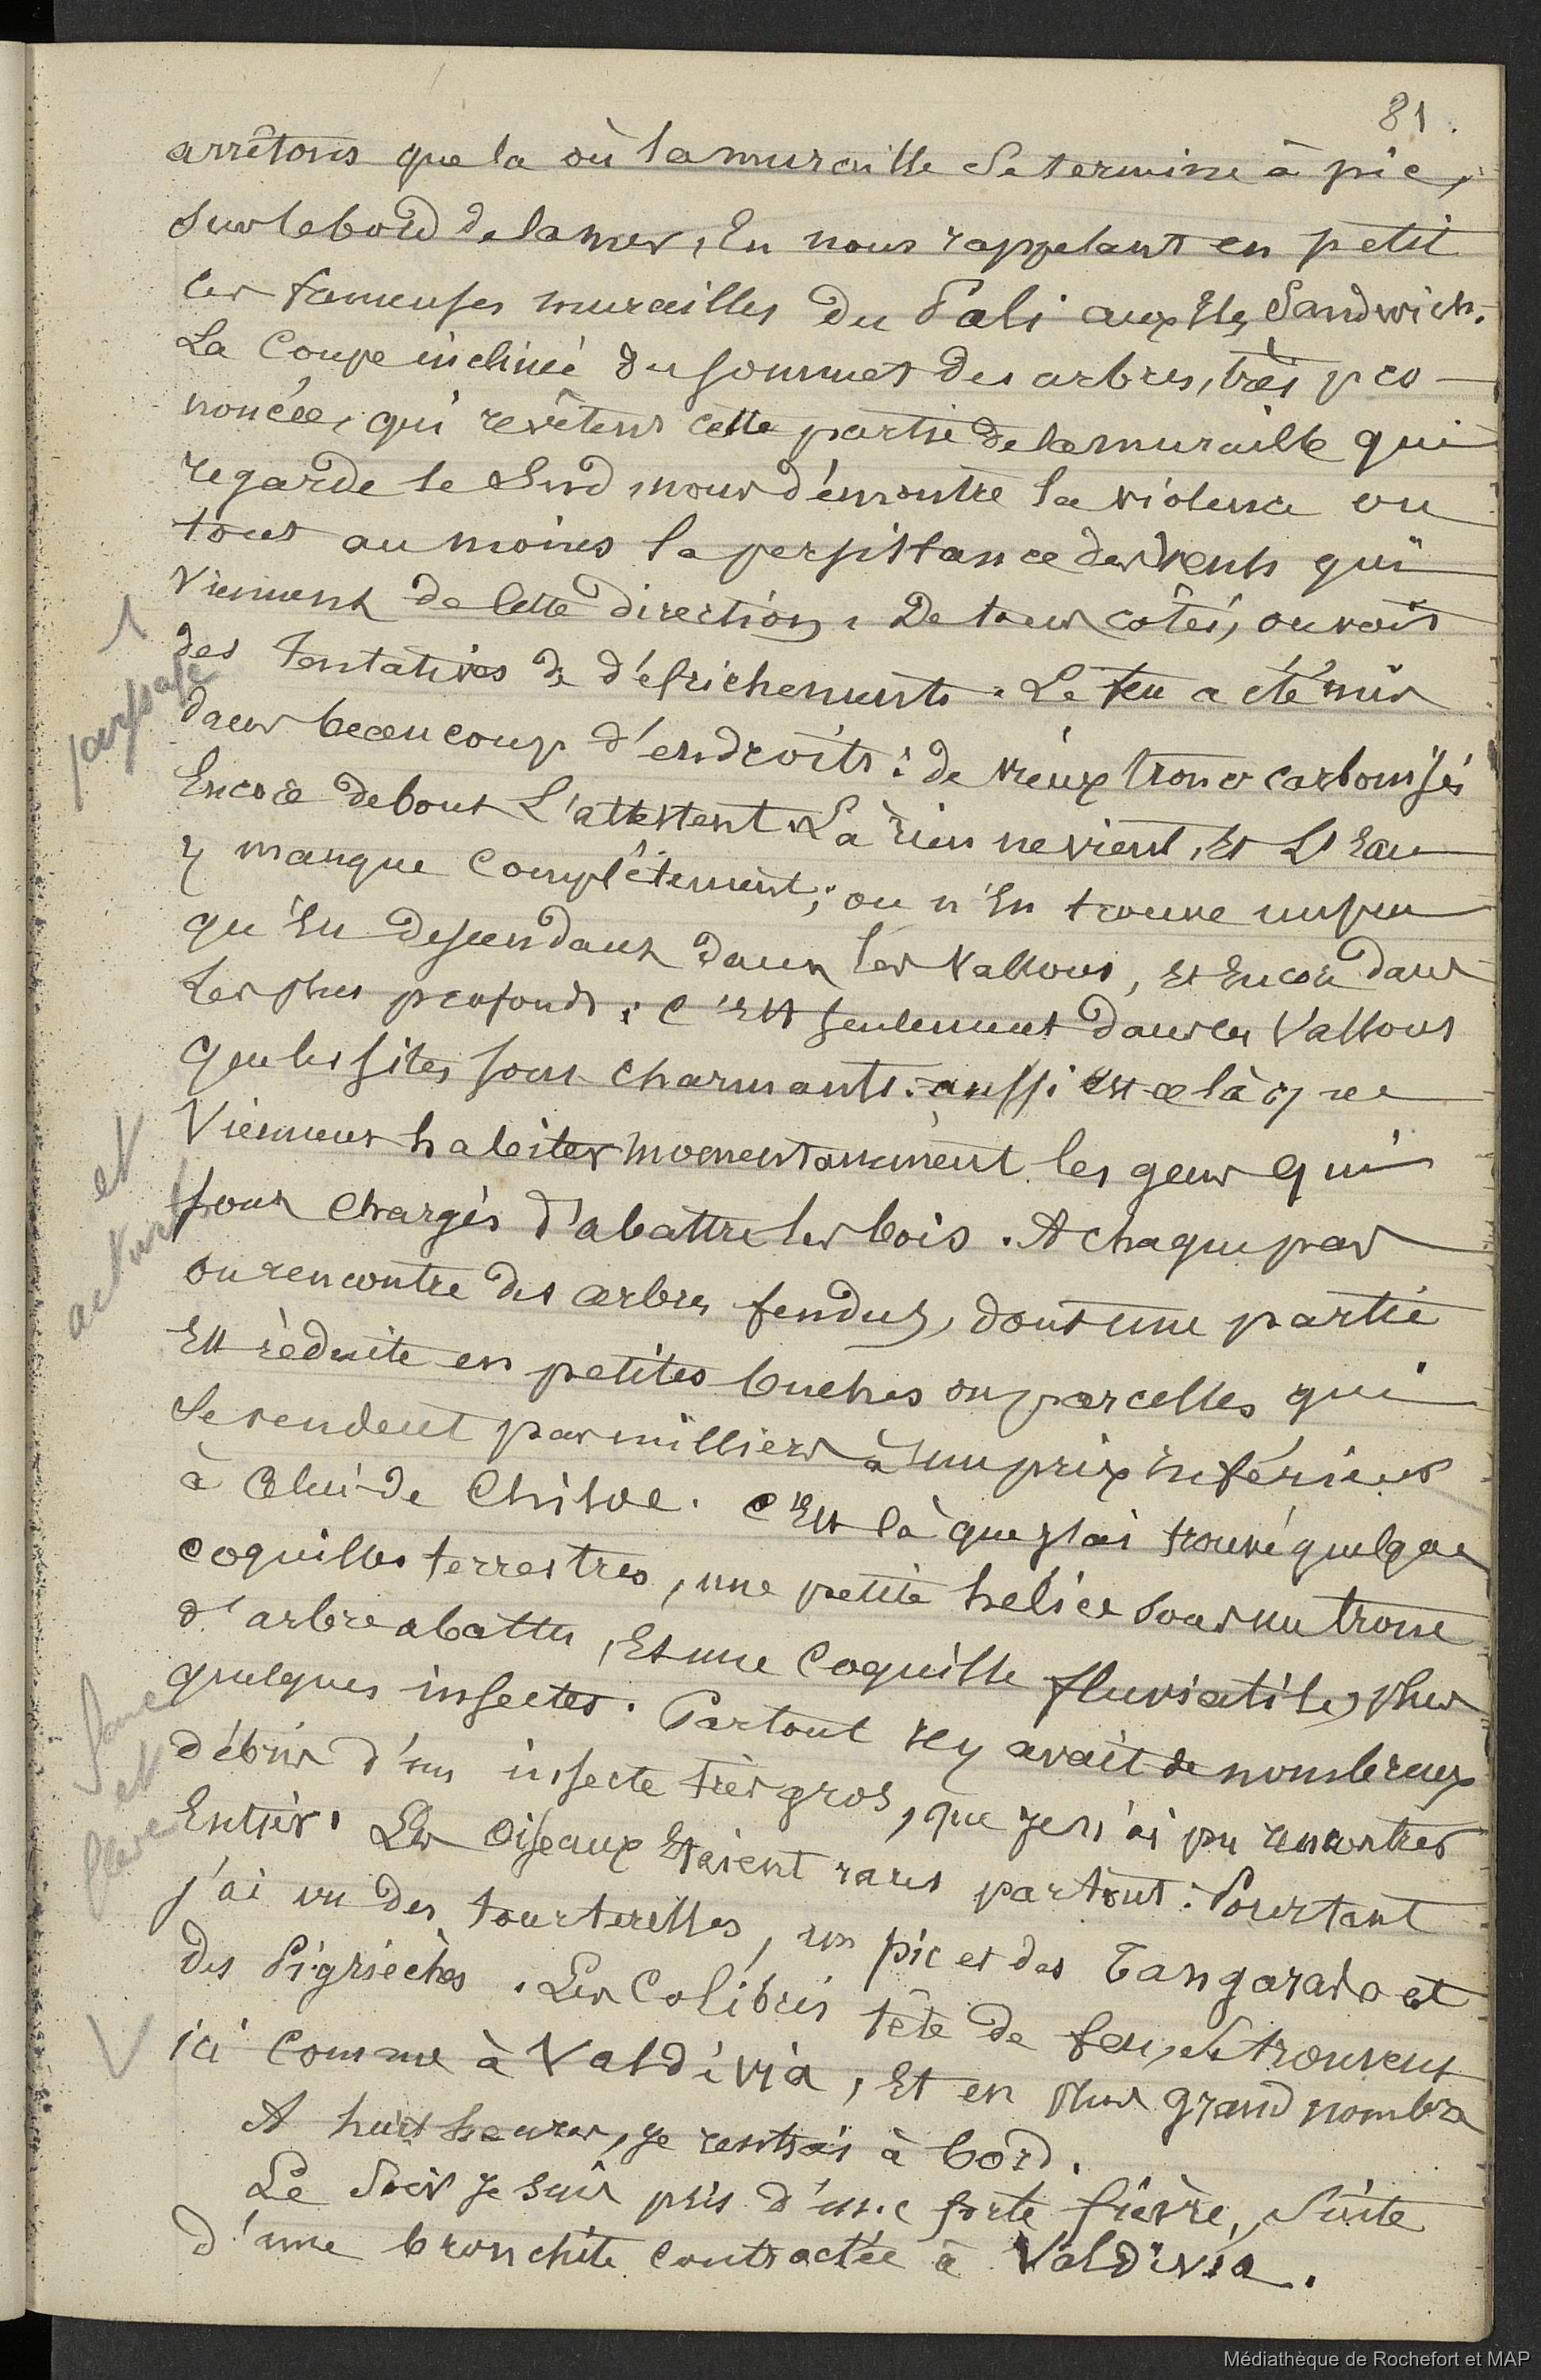 81.
arrêtons que la où la muraille se termine à pic,
sur le bord de la mer, En nous rappelant en petit
les fameuses murailles du Pali aux Iles Sandwich.
La Coupe inclinée du sommet des arbres, très pro-
noncée, qui revêtent cette partie de la muraille qui
regarde le Sud, nous démontre la violence ou
tout au moins la persistance des vents qui
viennent de cette direction. De tous côtés, on voit
des tentatives de défrichements. Le feu a été mis
dans beaucoup d'endroits: de vieux troncs carbonisés
Encore debout L'attestent. La rien ne vient, Et L'Eau
y manque complètement; on n'En trouve un peu
qu'En descendant dans les Vallons, et Encore dans
les plus profonds; c'Est seulement dans les Vallons
que les sites sont charmants. aussi est ce là que
Viennent habiter momentanément les gens qui
sont chargés d'abattre les bois. A chaque pas
on rencontre des arbres fendus, dont une partie
Est réduite en petites buches ou parcelles qui
se vendent par milliers à un prix inférieur
à celui de Chiloe. C'Est là que j'ai trouvé quelque
coquilles terrestres, une petite helice sous un tronc
d'arbre abattu, Et une coquille fluviatile, plus
quelques insectes. Partout il y avait de nombreux
débris d'un insecte très gros, que je n'ai pu rencontrer
Entier. Les Oiseaux Etaient rares partout: Pourtant
j'ai vu des tourterelles, un pic et des Tangaras et
des Pigrièches. Les Colibris tête de feu, se trouvent
ici comme à Valdivia, Et en plus grand nombre
A huit heures, je rentrai à bord.
Le Soir je suis pris d'une forte fièvre, Suite
d'une bronchite contractée à Valdivia.
paysage
et
faune
et
flore
Médiathèque de Rochefort et MAP